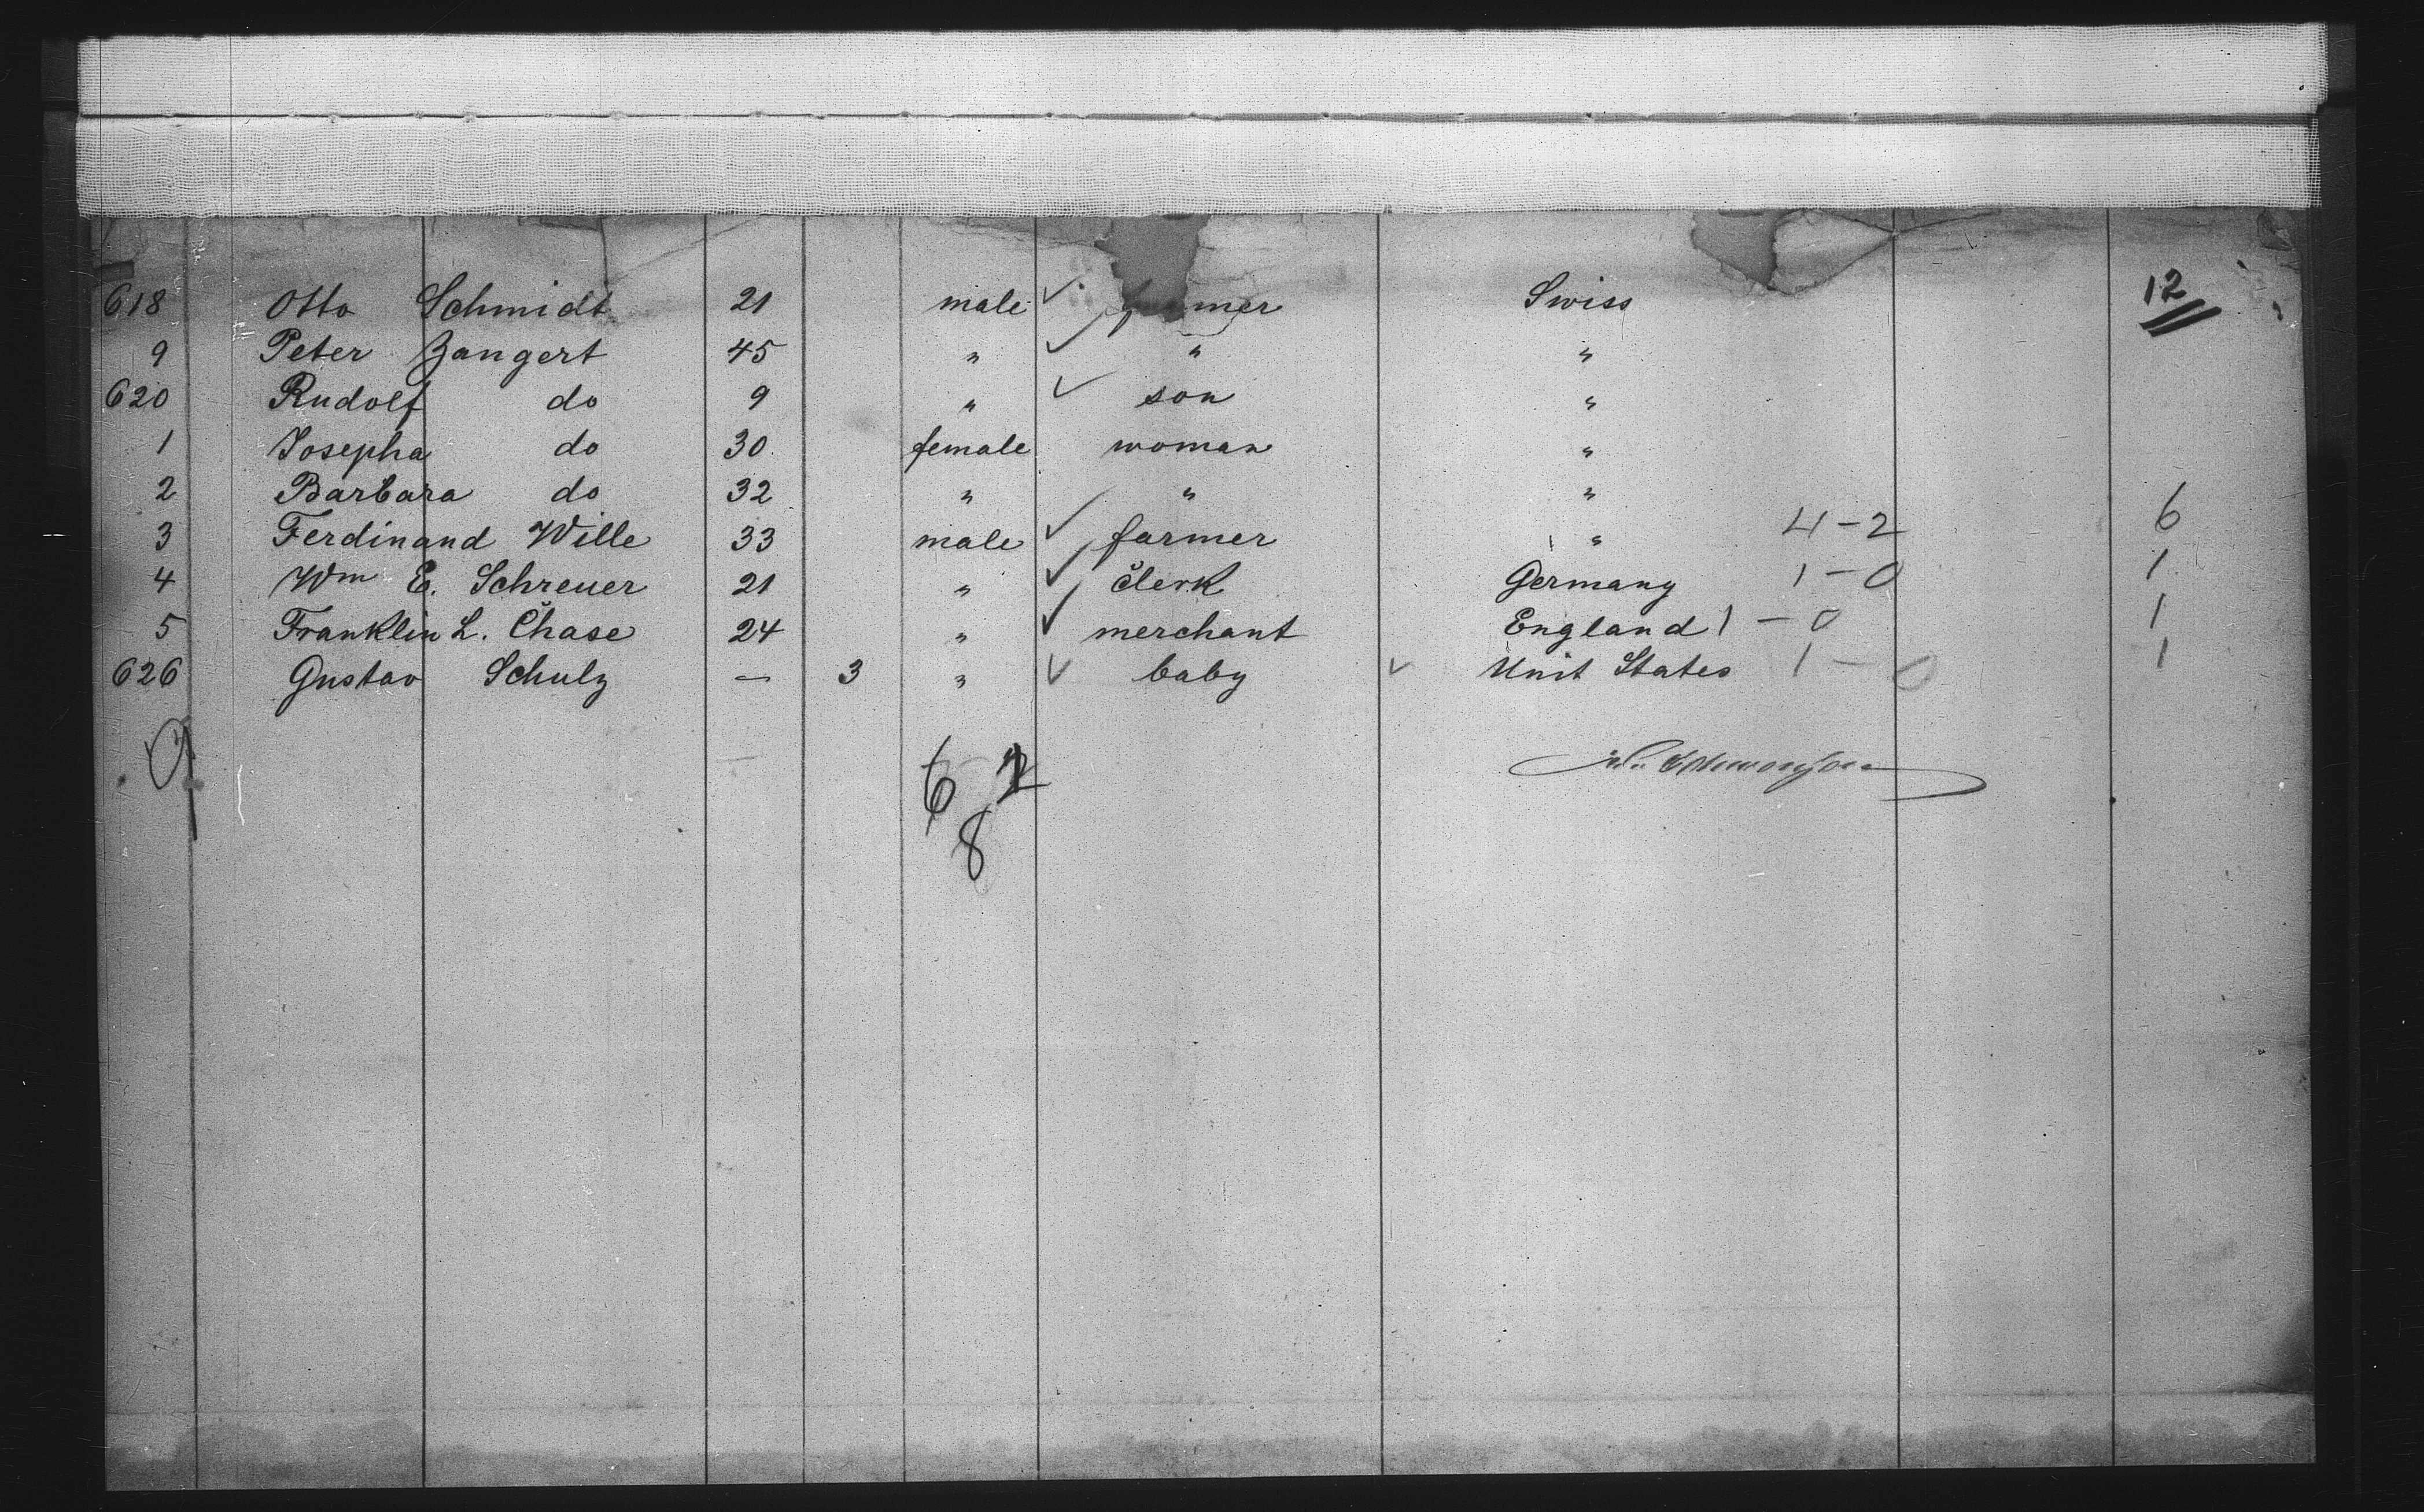 12
618 Otto Schmidt 21 male farmer Swiss
9 Peter Zangert 45 " " "
620 Rudolf do 9 " son "
1 Josepha do 30 female woman "
2 Barbara do 32 " " "
3 Ferdinand Wille 33 male farmer " 4-2 6
4 Wm E. Schreuer 21 " Clerk Germany 1-0 1
5 Franklin L. Chase 24 " merchant England 1-0 1
626 Gustav Schulz — 3 " baby Unit States 1-0 1
9
6 2
8